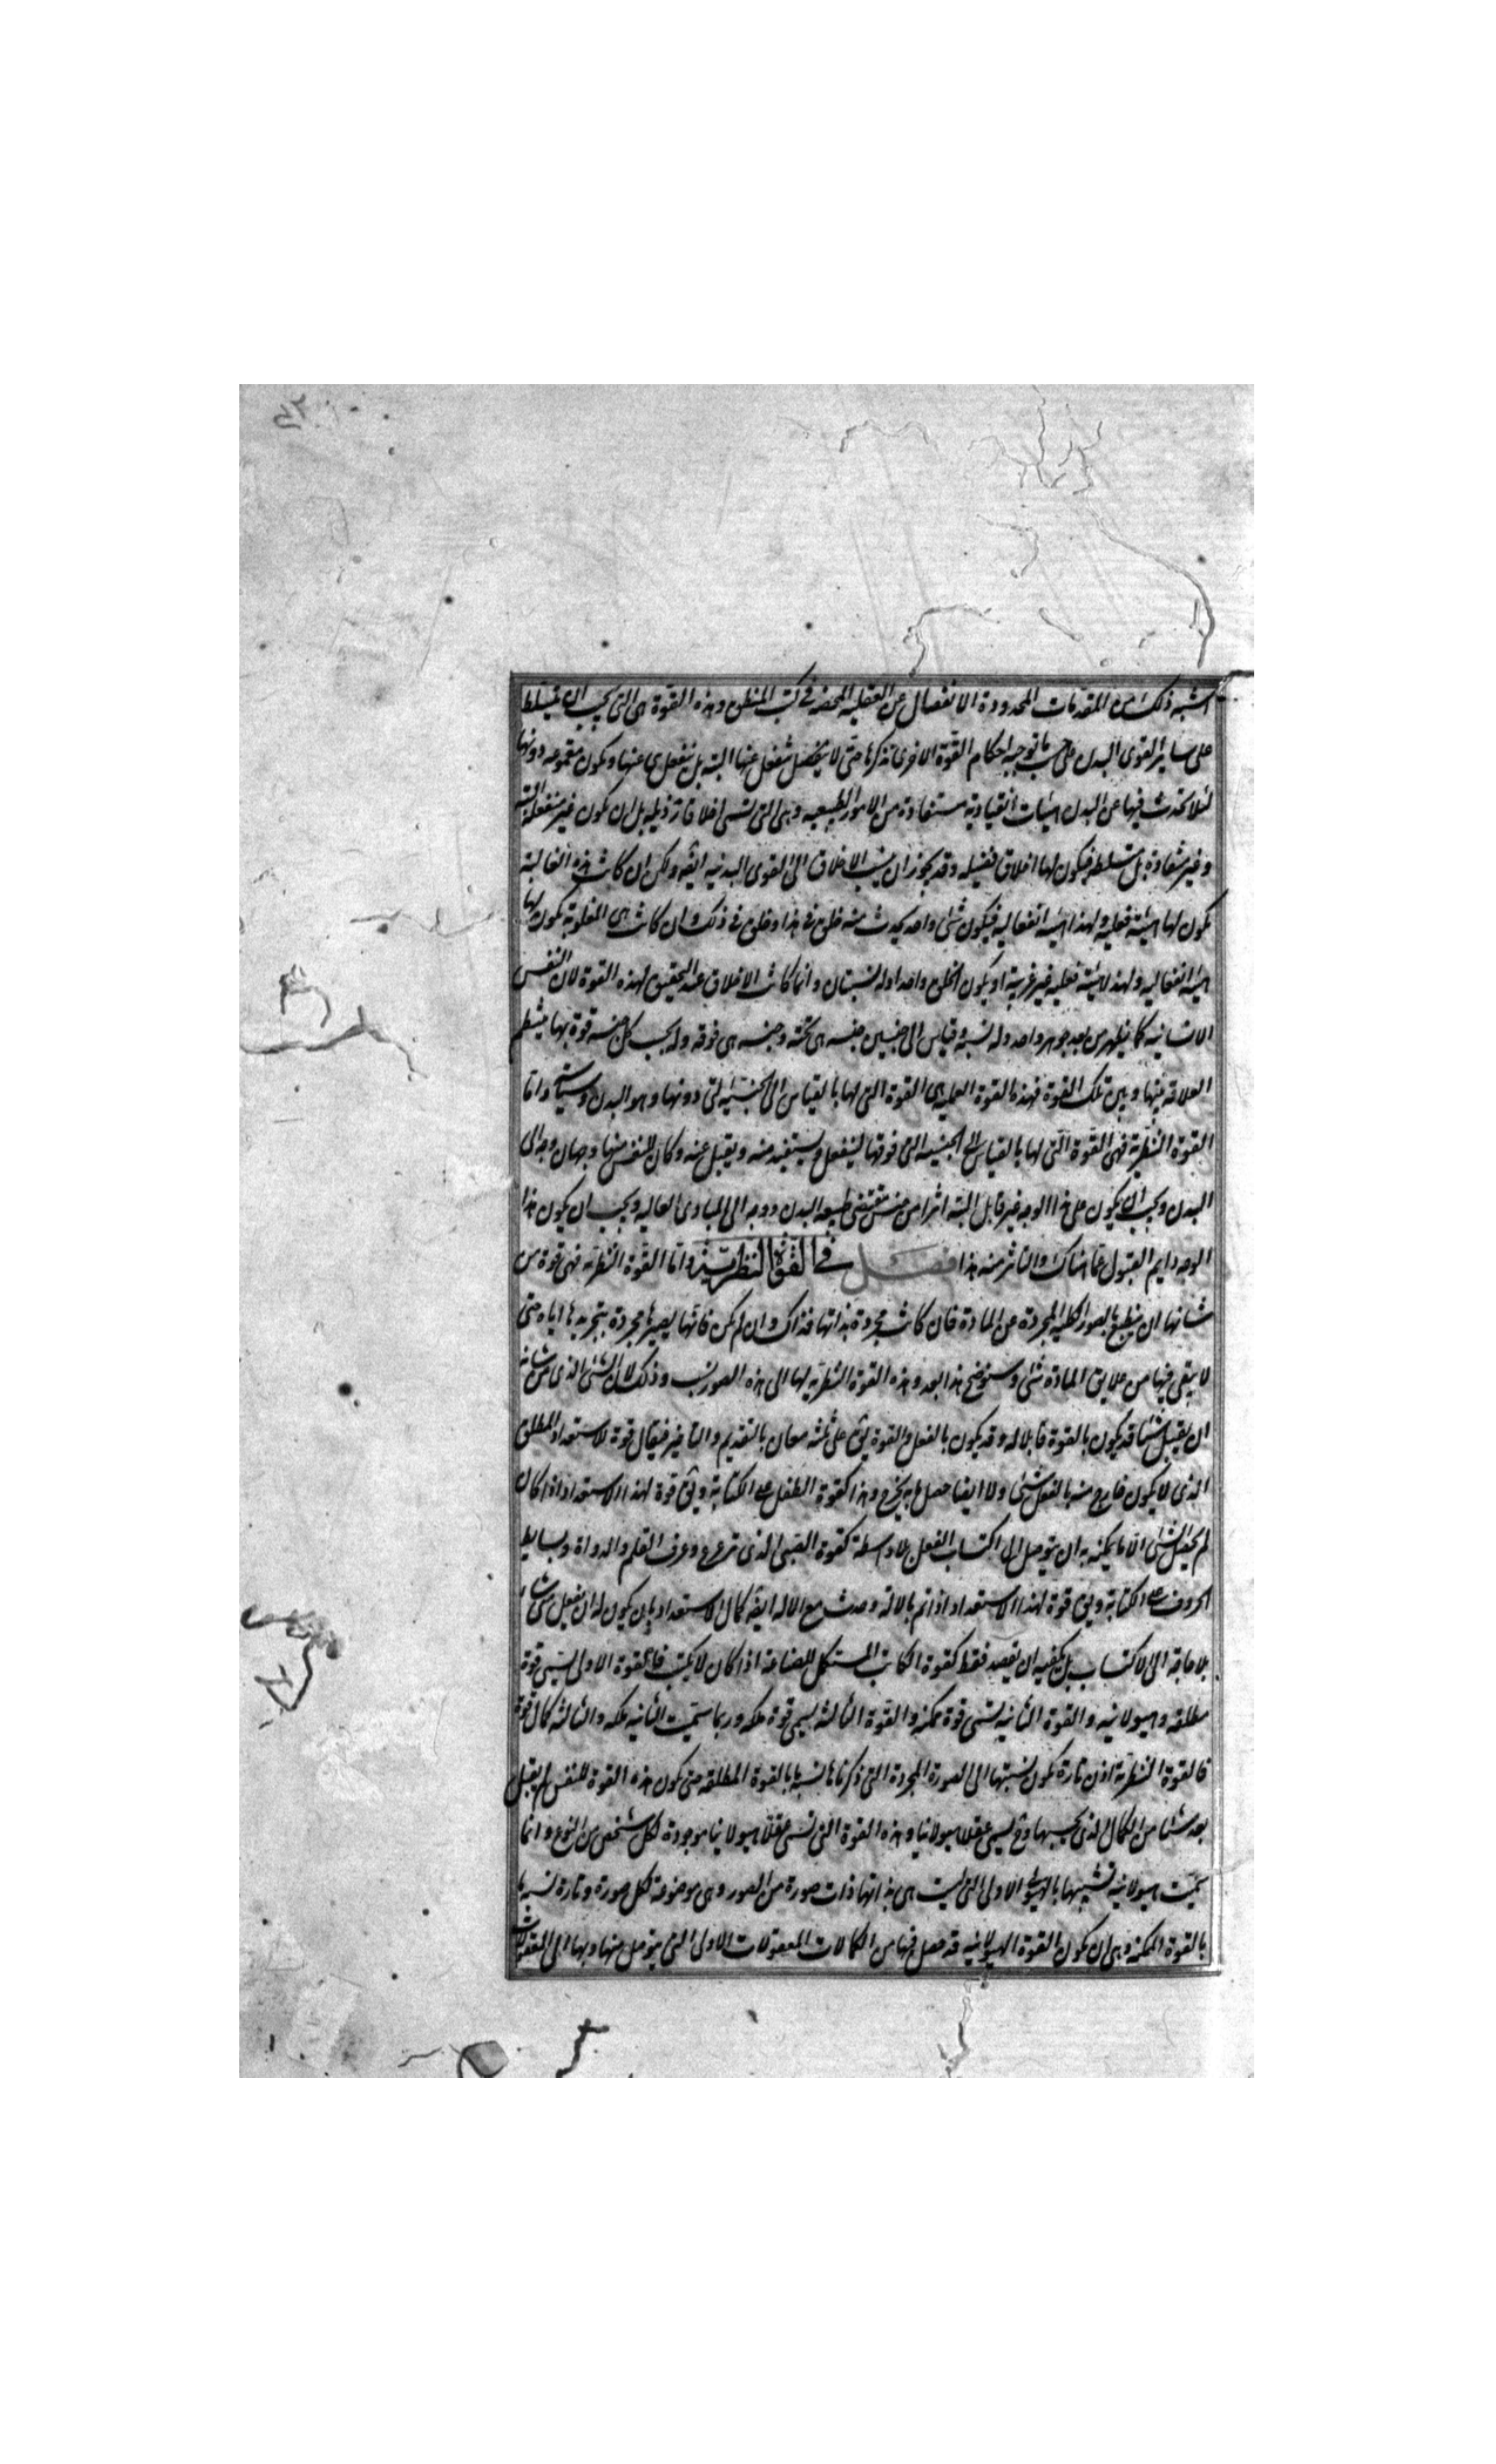 اشبه ذلك من المقدمات المحدودة الانفصال عن العقلية المحضه فى كتب المنطق وهذه القوة هى التى يجب ان تتسلط
على ساير القوى البدن على حسب ما توجبه احكام القوة الاخرى نذكرها حتى لا ينفعل عنها البته بل ينفعل هى عنها ويكون مقموعه دونها
لئلا تحدث فيها عن البدن هيئات انقيادية مستفادة من الامور الطبيعيه وهى التى تسمى اخلاقا رذيليه بل ان يكون غير منفعله البته
وغير منقادة بل متسلطه فيكون لها اخلاق فضيليه وقد يجوز ان ينسب الاخلاق الى القوى البدنيه ايضه ولكن ان كانت هذه الغالبة
يكون لها هيئة فعليه ولهذا هيئه انفعاليه فيكون شئ واحد يحدث منه خلق فى هذا وخلق فى ذلك وان كانت هى المغلوبة يكون لها
هيئه انفعاليه ولهذا هيئة فعليه غير غريبة او يكون الخلق واحدا وله نسبتان وانما كانت الاخلاق عند التحقيق لهذه القوة لان النفس
الانسانيه كما يظهر من بعد جوهر واحد وله نسبة وقياس الى جنبتين جنبه هى تحته وجنبه هى فوقه وله بحسب كل جنبه قوة بها ينتظم
العلاقه بينها وبين تلك القوة فهذه القوة العمليه هى القوة التى لها بالقياس الى الجنبة التى دونها وهو البدن وسياسته واما
القوة النظرية فهى القوة التى لها بالقياس الى الجنبه التى فوقها لينفعل ويستفيد منه ويقبل عنه وكان للنفس منها وجهان وجه الى
البدن ويجب ان يكون على هذا الوجه غير قابل البته اثرا من جنس مقتضى طبيعه البدن ووجه الى المبادى العاليه ويجب ان يكون هذا
الوجه دايم القبول عما هناك والتاثر منه هذا فصل فى القوة النظرية واما القوة النظريه فهى قوة من
شانها ان ينطبع بالصور الكليه المجردة عن المادة فان كانت مجردة بذاتها فذاك وان لم يكن فانها يصيرها مجردة بتجريدها اياه حتى
لا يبقى فيها من علايق المادة شئ وسنوضح هذا بعد وهذه القوة النظريه لها الى هذه الصور نسب وذلك لان الشئ الذى من شانه
ان يقبل شيئا قد يكون بالقوة قابلا له وقد يكون بالفعل والقوة يق على ثلثه معان بالتقديم والتاخير فيقال قوة للاستعداد المطلق
الذى لا يكون خارج منه بالفعل شئ ولا ايضا حصل ما به يخرج وهذا كقوة الطفل على الكتابة ويق قوة لهذا الاستعداد اذا كان
لم يحصل للشئ الا ما يمكنه به ان يتوصل الى اكتساب الفعل بلا واسطة كقوة الصبى الذى ترعرع وعرف القلم والدواة وبسايط
الحروف على الكتابة ويق قوة لهذا الاستعداد اذا تم بالالة وحدث مع الاله ايضه كمال الاستعداد بان يكون له ان يفعل متى شاء
بلا حاجة الى الاكتساب بل يكفيه ان يقصد فقط كقوة الكاتب المستكمل للصناعة اذا كان لا يكتب فالقوة الاولى يسمى قوة
مطلقه وهيولانيه والقوة الثانيه تسمى قوة ممكنه والقوة الثالثة يسمى قوة ملكه وربما سميت الثانيه ملكه والثالثه كمال قوة
فالقوة النظرية اذن تارة يكون نسبتها الى الصورة المجردة التى ذكرناها نسبة ما بالقوة المطلقه حتى يكون هذه القوة للنفس لم يقبل
بعد شيئا من الكمال الذى بحسبها وح يسمى عقلا هيولانيا وهذه القوة التى تسمى عقلا هيولانيا موجودة لكل شخص من النوع وانما
سميت هيولانيه تشبيها بالهيولى الاولى التى ليست هى بذاتها ذات صورة من الصور وهى موضوعة لكل صورة وتارة نسبة ما
بالقوة الممكنه وهى ان يكون القوة الهيولانيه قد حصل فيها من الكمالات المعقولات الاولى التى يتوصل منها وبها الى المعقولات